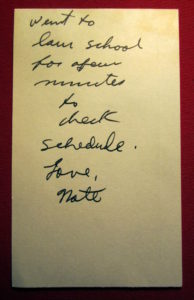 Went to
law school
for a few
minutes
to
check
schedule.
Love,
Nate